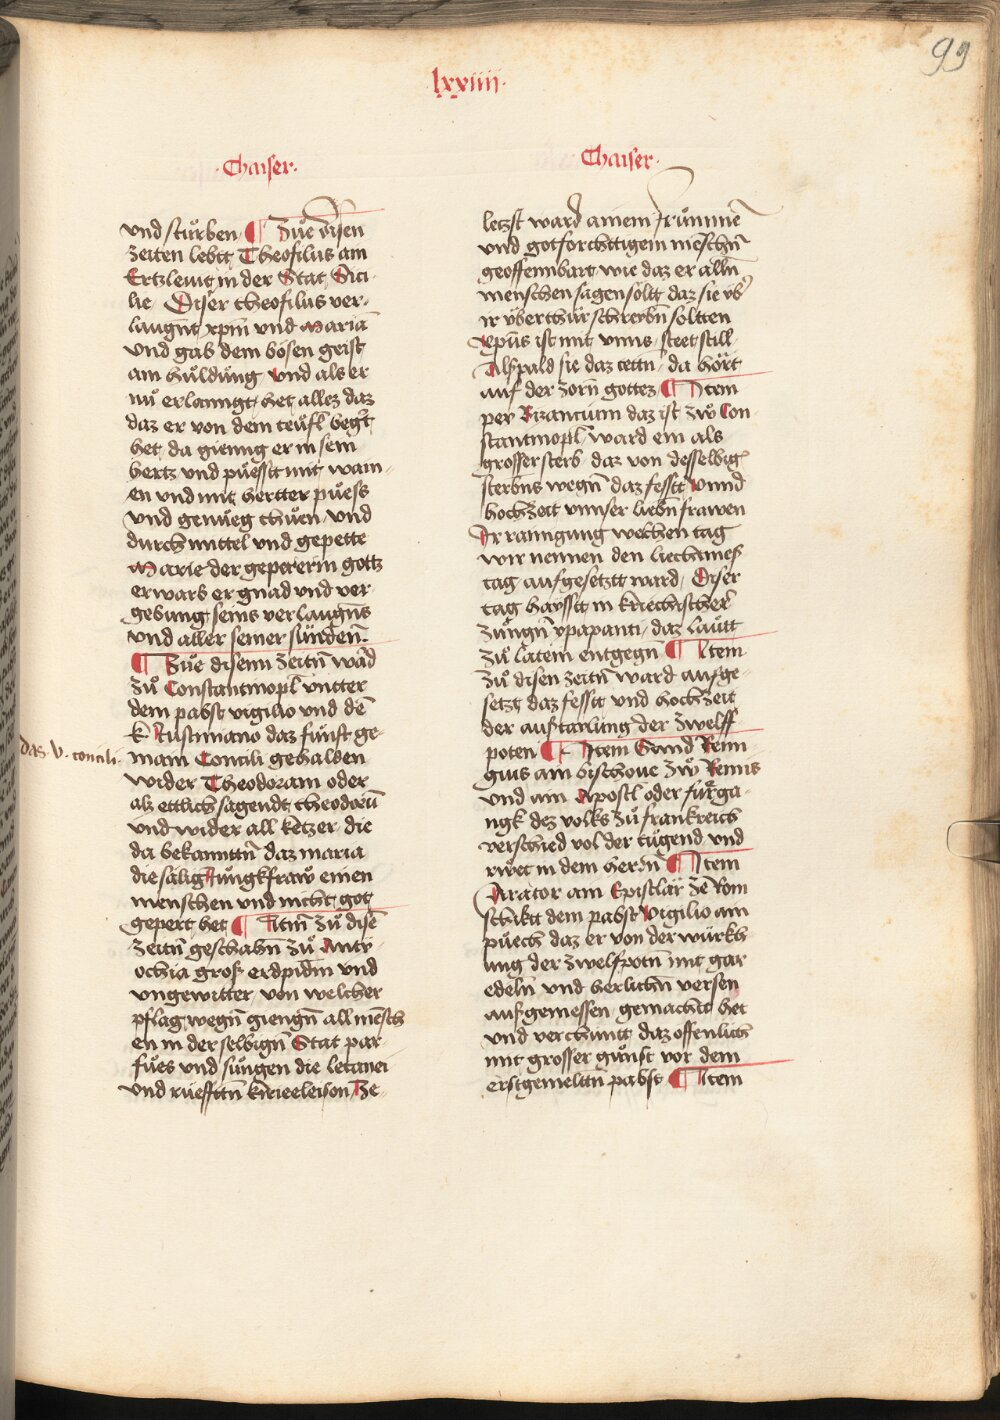 99
lxxiiij·
·Chaiser·
und stuͦrben ¶ Zue disen
zeiten lebtt Theofilus am
Ertzlewit in der Stat Sici
lie Diser theofilus ver-
laugnt xpm̄ und mariā
und gab dem bösen geist
am huͦldung und als er
nu erlanngt het allez daz
daz er von dem teuͦfl begt
het da gienng er in sein
hertz und puͤesstt mit wain
en und mit hertter puͤess
und genueg thuͤen und
durch mittel und gepette
marie der gepererin gottz
erwarb er gnad und ver
gebung seins verlaugns
und aller seiner sünden.
¶ Zue disenn zeitn̄ wād
zuͦ Constantinopl vntter
dem pabst vigilio und dē
k Justiniano daz fünfft ge-
main Concili gehalden
das v. concili.
wider Theodoram oder
alz ettlich sagendt theodorū
und wider all ketzer die
da bekanntn̄ daz maria
die salig Jungkfraw einen
menschen und nicht got
gepert het ¶ Itm̄ zuͦ disē
zeitn̄ geschahn̄ zuͦ Antÿ
ochia groß erdpidm̄ und
ungewitter von welcher
pflag wegn̄ giengn̄ all mēsch
en in der selbign̄ Stat par
fuͤes und sungen die letanei
und ruͤefftn̄ kirieeleison Ze-
·Chaiser·
letzst ward ainem frümmē
und gotforchttigem meschn̄
geoffennbart wie daz er alln̄
menschen sagen soltt daz sie vb̓
ir vberthür schreybn̄ soltten
xpūs ist mit vnns steet still
Alspald sie daz tettn̄ da hört
auf der zorn gottez ¶ Item
per Bizantium daz ist zw Con
stantinopl ward ein als
grosser sterb daz von desselbign̄
sterbns wegn̄ daz fesstt vnnd
hochzeit vnnser liebn̄ frawen
Ir rainigung welchen tag
wir nennen den liechtmeß
tag aufgesetztt ward Diser
tag haysstt in kriechischer
zungn̄ ypapanti daz lautt
zuͦ latein entgegn̄ ¶ Item
zuͦ disen zeitn̄ ward aufge-
setzt daz fesstt und hochzeit
der außtailung der zwelff
poten ¶ Item Sand Remi
gius am bischoue zw Remis
und am Apostl oder fürga
ngk dez volks zuͦ frankreich
verschied vol der tugend und
ruͤet in dem hern̄ ¶ Item
Arator am Epistlär ze Rom
schikt dem pabst Vigilio am
puͤech daz er von der würkh
ung der zwelfpotn̄ mit gar
edeln̄ und herlichn̄ versen
außgemessen gemacht het
und verchuntt daz offenlich
mit grosser gunst vor dem
erstgemeltn̄ pabst ¶ Item